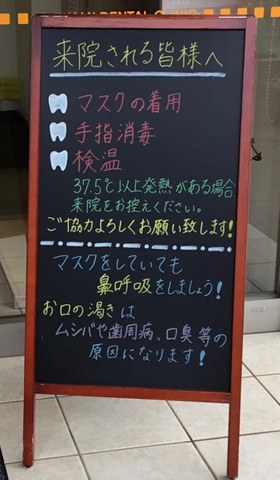 DENTAL CLINIC
来院される皆様へ
マスクの着用
手指消毒
検温
37.5℃以上発熱がある場合
来院をお控えください。
ご協力よろしくお願い致します!
マスクをしていても
鼻呼吸をしましょう!
お口の渇きは
ムシバや歯周病、口臭等の
原因になります!